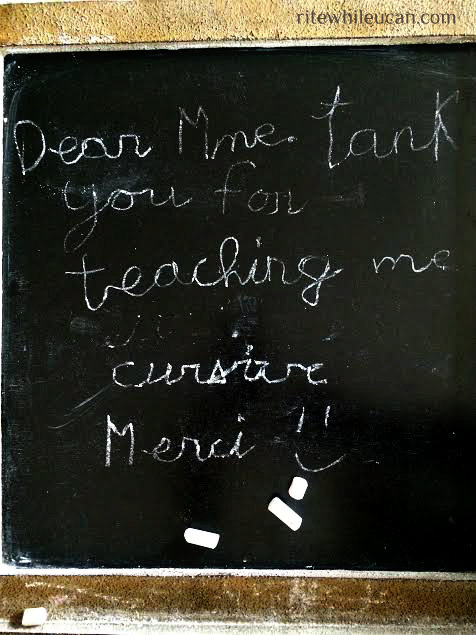 ritewhileucan.com
Dear Mme. tank
you for
teaching me
cursive
Merci